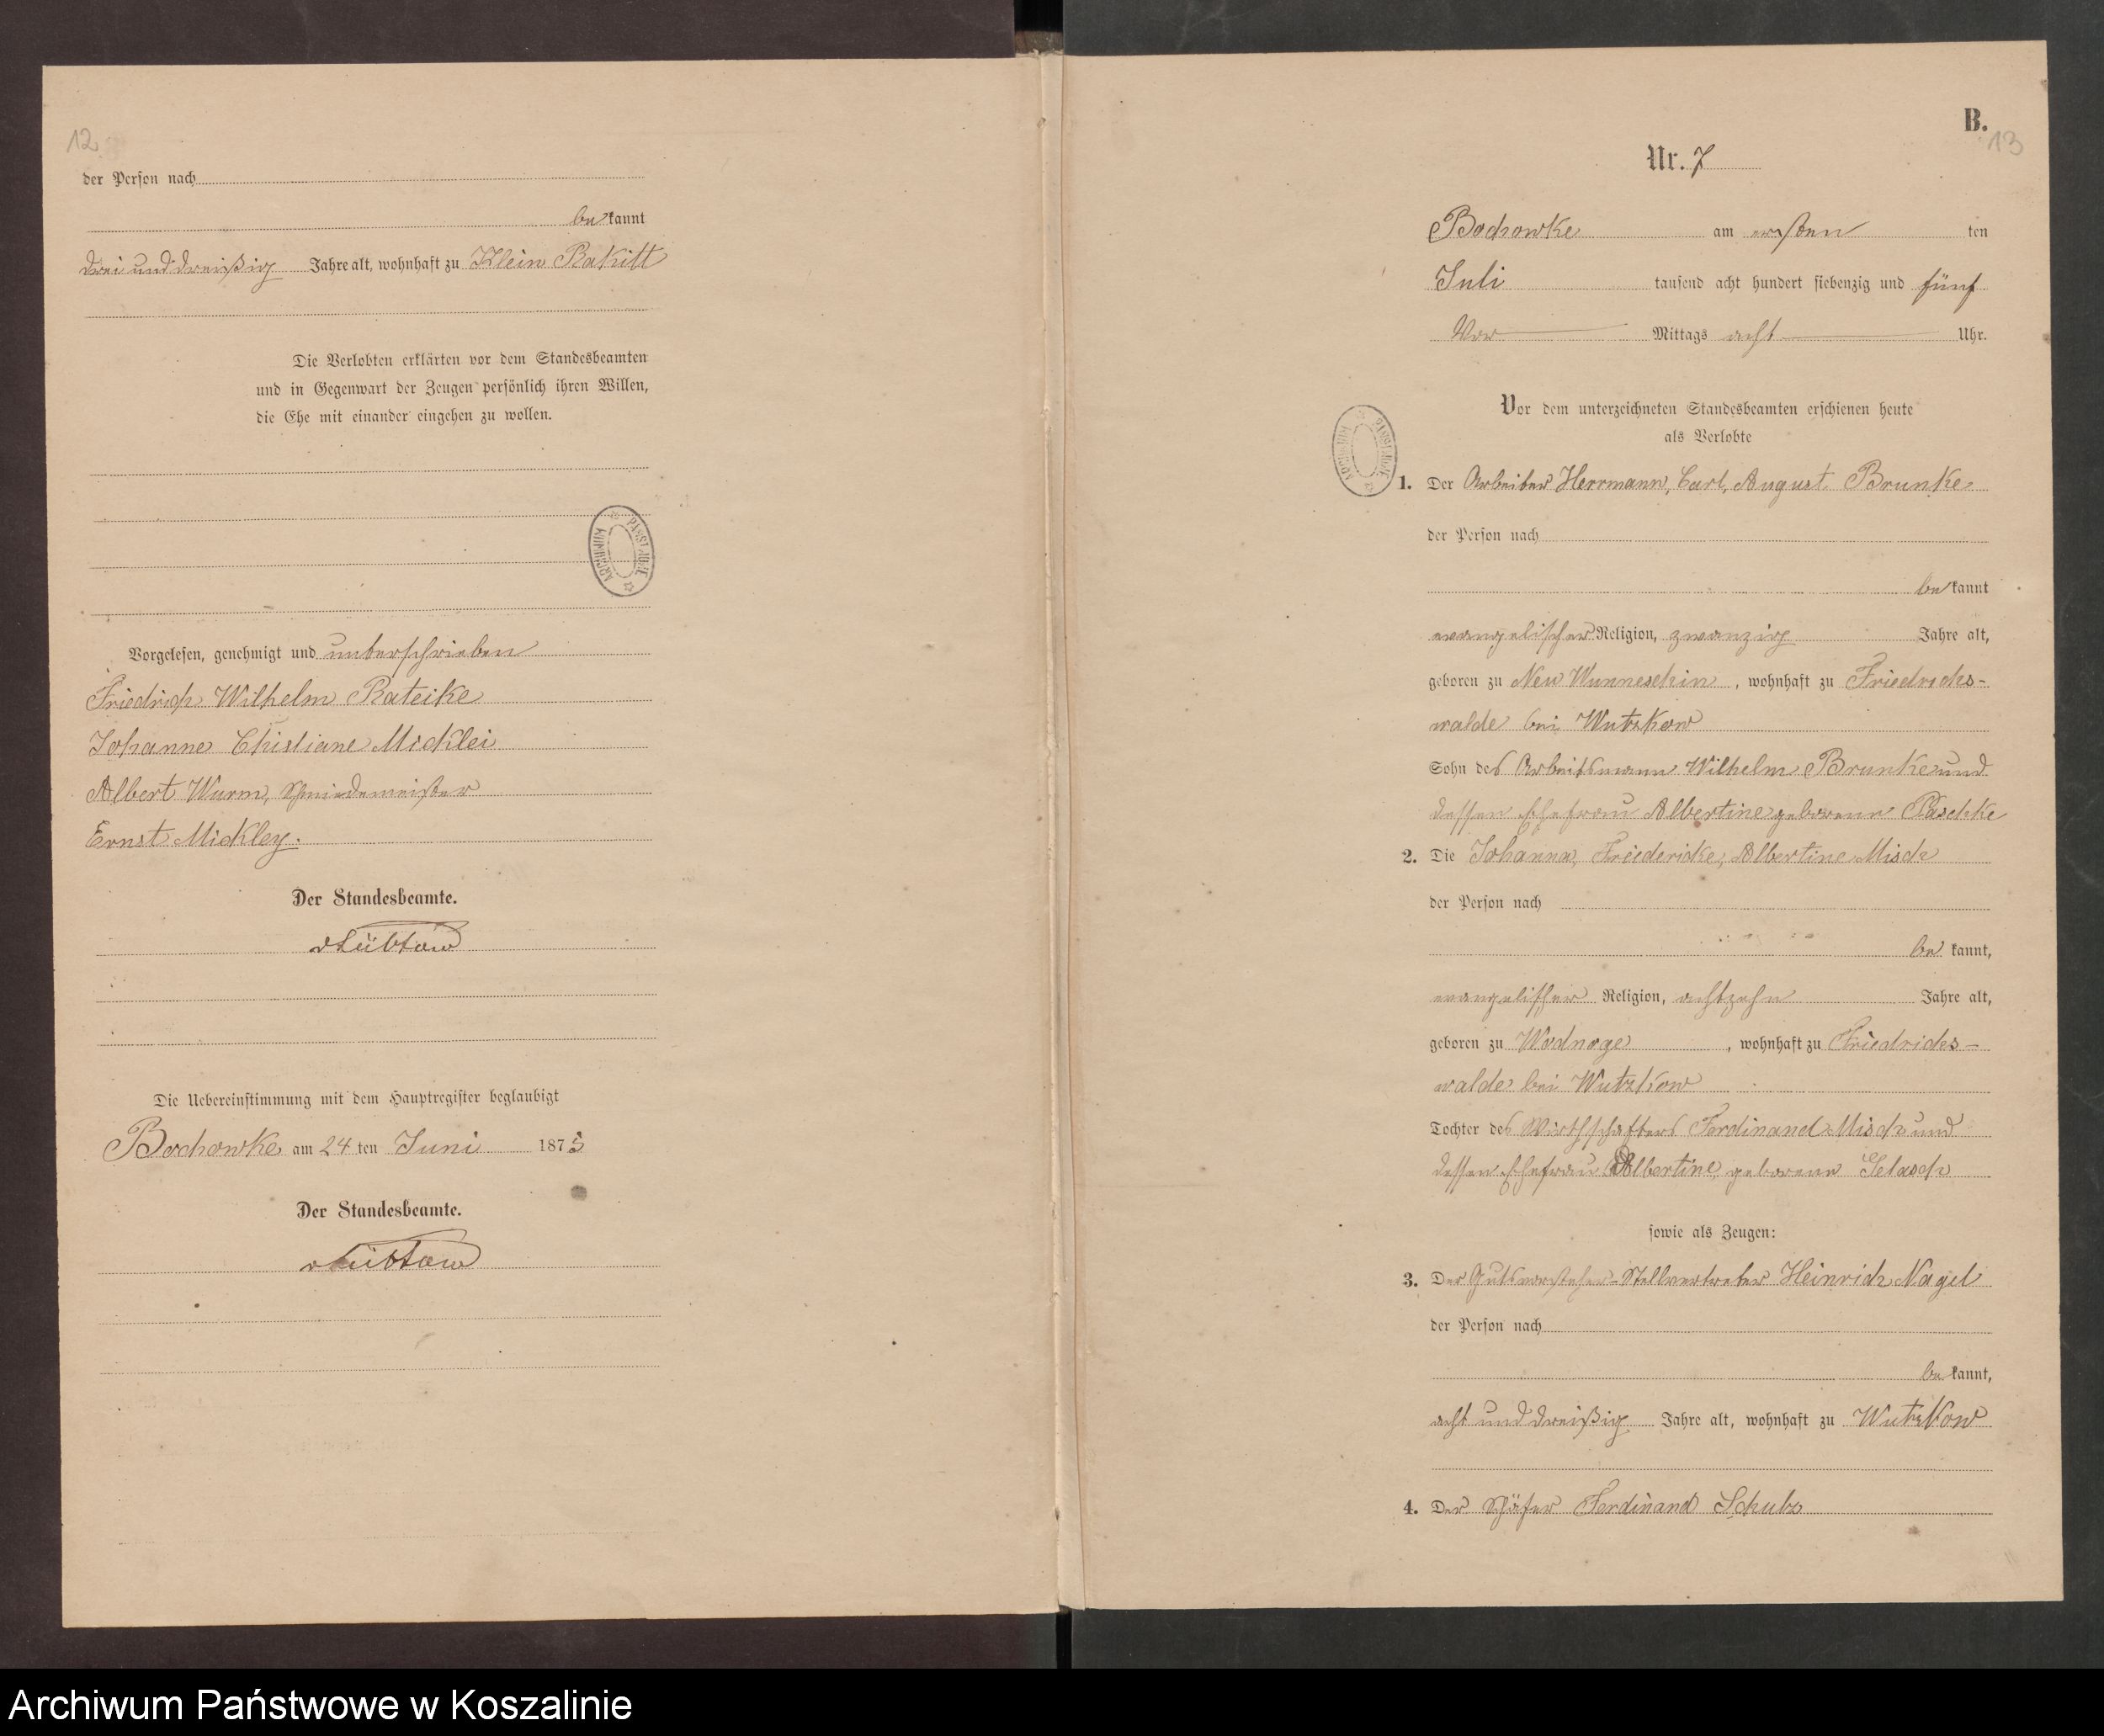 12.
der Person nach
bekannt
drei und dreißig Jahre alt, wohnhaft zu Klein Rakitt
Die Verlobten erklärten vor dem Standesbeamten
und in Gegenwart der Zeugen persönlich ihren Willen,
die Ehe mit einander eingehen zu wollen.
Vorgelesen, genehmigt und unterschrieben
Friedrich Wilhelm Rateike
Johanne Christiane Micklei
Albert Wurm, Schmiedemeister
Ernst Mickley.
Der Standesbeamte.
Die Uebereinstimmung mit dem Hauptregister beglaubigt
Bochowke am 24 ten Juni 1875
Der Standesbeamte.
B.
13
Nr. 7
Bochowke am ersten ten
Juli tausend acht hundert siebenzig und fünf
Vor Mittags acht Uhr.
Vor dem unterzeichneten Standesbeamten erschienen heute
als Verlobte
1. Der Arbeiter Herrmann, Carl, August Brunke
der Person nach
bekannt
evangelischer Religion, zwanzig Jahre alt,
geboren zu Neu Wunneschin, wohnhaft zu Friedrichs-
walde bei Wutzkow
Sohn des Arbeitsmann Wilhelm Brunke und
dessen Ehefrau Albertine geborene Paschke
2. Die Johanna, Friedericke, Albertine Misch
der Person nach
bekannt,
evangelischer Religion, achtzehn Jahre alt,
geboren zu Wodnoge, wohnhaft zu Friedrichs-
walde bei Wutzkow
Tochter des Wirthschafters Ferdinand Misch und
dessen Ehefrau Albertine, geborene Selasch
sowie als Zeugen:
3. Der Gutsvorsteher-Stellvertreter Heinrich Nagel
der Person nach
bekannt,
acht und dreißig Jahre alt, wohnhaft zu Wutzkow
4. Der Schäfer Ferdinand Schulz
Archiwum Państwowe w Koszalinie